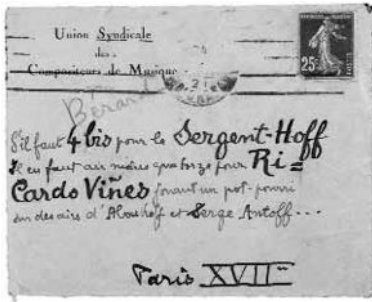 Union Syndicale
des
Compositeurs de Musique
25
Bérard
S'il faut 4 bis pour le Sergent-Hoff
Il en faut au moins quatorze pour Ri=
Cardo Viñes jouant un pot-pourri
sur des airs d' et Serge Antoff...
Paris XVII